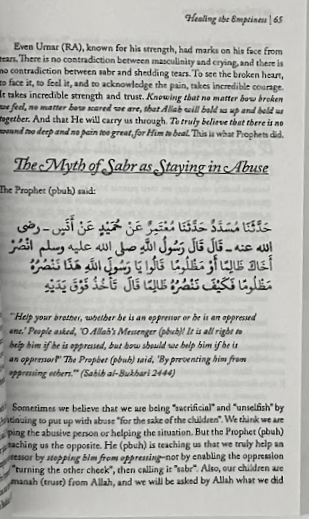 Healing the Emptiness | 65
Even Umar (RA), known for his strength, had marks on his face from
tears. There is no contradiction between masculinity and crying, and there is
no contradiction between sabr and shedding tears. To see the broken heart,
to face it, to feel it, and to acknowledge the pain, takes incredible courage.
It takes incredible strength and trust. Knowing that no matter how broken
we feel, no matter how scared we are, that Allah will hold us up and hold us
together. And that He will carry us through. To truly believe that there is no
wound too deep and no pain too great, for Him to heal. This is what Prophets did.
The Myth of Sabr as Staying in Abuse
The Prophet (pbuh) said:
حَدَّثَنَا مُسَدَّدٌ حَدَّثَنَا مُعْتَمِرٌ عَنْ حُمَيْدٍ عَنْ أَنَسٍ ـ رضى
الله عنه ـ قَالَ قَالَ رَسُولُ اللَّهِ صلى الله عليه وسلم انْصُرْ
أَخَاكَ ظَالِمًا أَوْ مَظْلُومًا قَالُوا يَا رَسُولَ اللَّهِ هَذَا نَنْصُرُهُ
مَظْلُومًا فَكَيْفَ نَنْصُرُهُ ظَالِمًا قَالَ تَأْخُذُ فَوْقَ يَدَيْهِ
"Help your brother, whether he is an oppressor or he is an oppressed
one.' People asked, 'O Allah's Messenger (pbuh)! It is all right to
help him if he is oppressed, but how should we help him if he is
an oppressor?' The Prophet (pbuh) said, 'By preventing him from
oppressing others.'" (Sahih al-Bukhari 2444)
Sometimes we believe that we are being "sacrificial" and "unselfish" by
tinuing to put up with abuse "for the sake of the children". We think we are
ping the abusive person or helping the situation. But the Prophet (pbuh)
aching us the opposite. He (pbuh) is teaching us that we truly help an
ressor by stopping him from oppressing—not by enabling the oppression
"turning the other cheek", then calling it "sabr". Also, our children are
manah (trust) from Allah, and we will be asked by Allah what we did